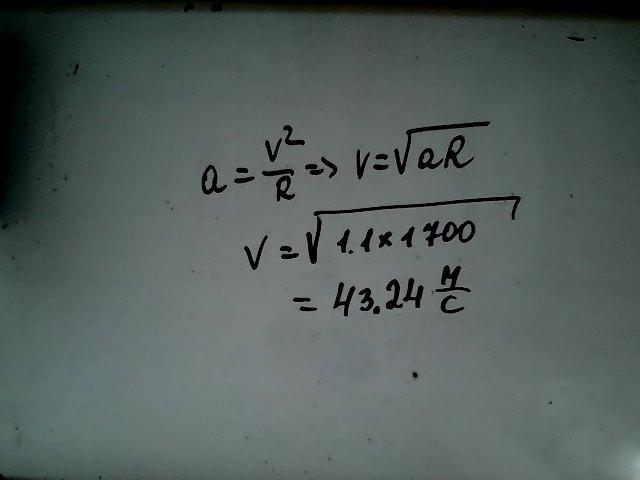 a = V²/R => V = √aR
V = √1.1 × 1700
= 43.24 М/С